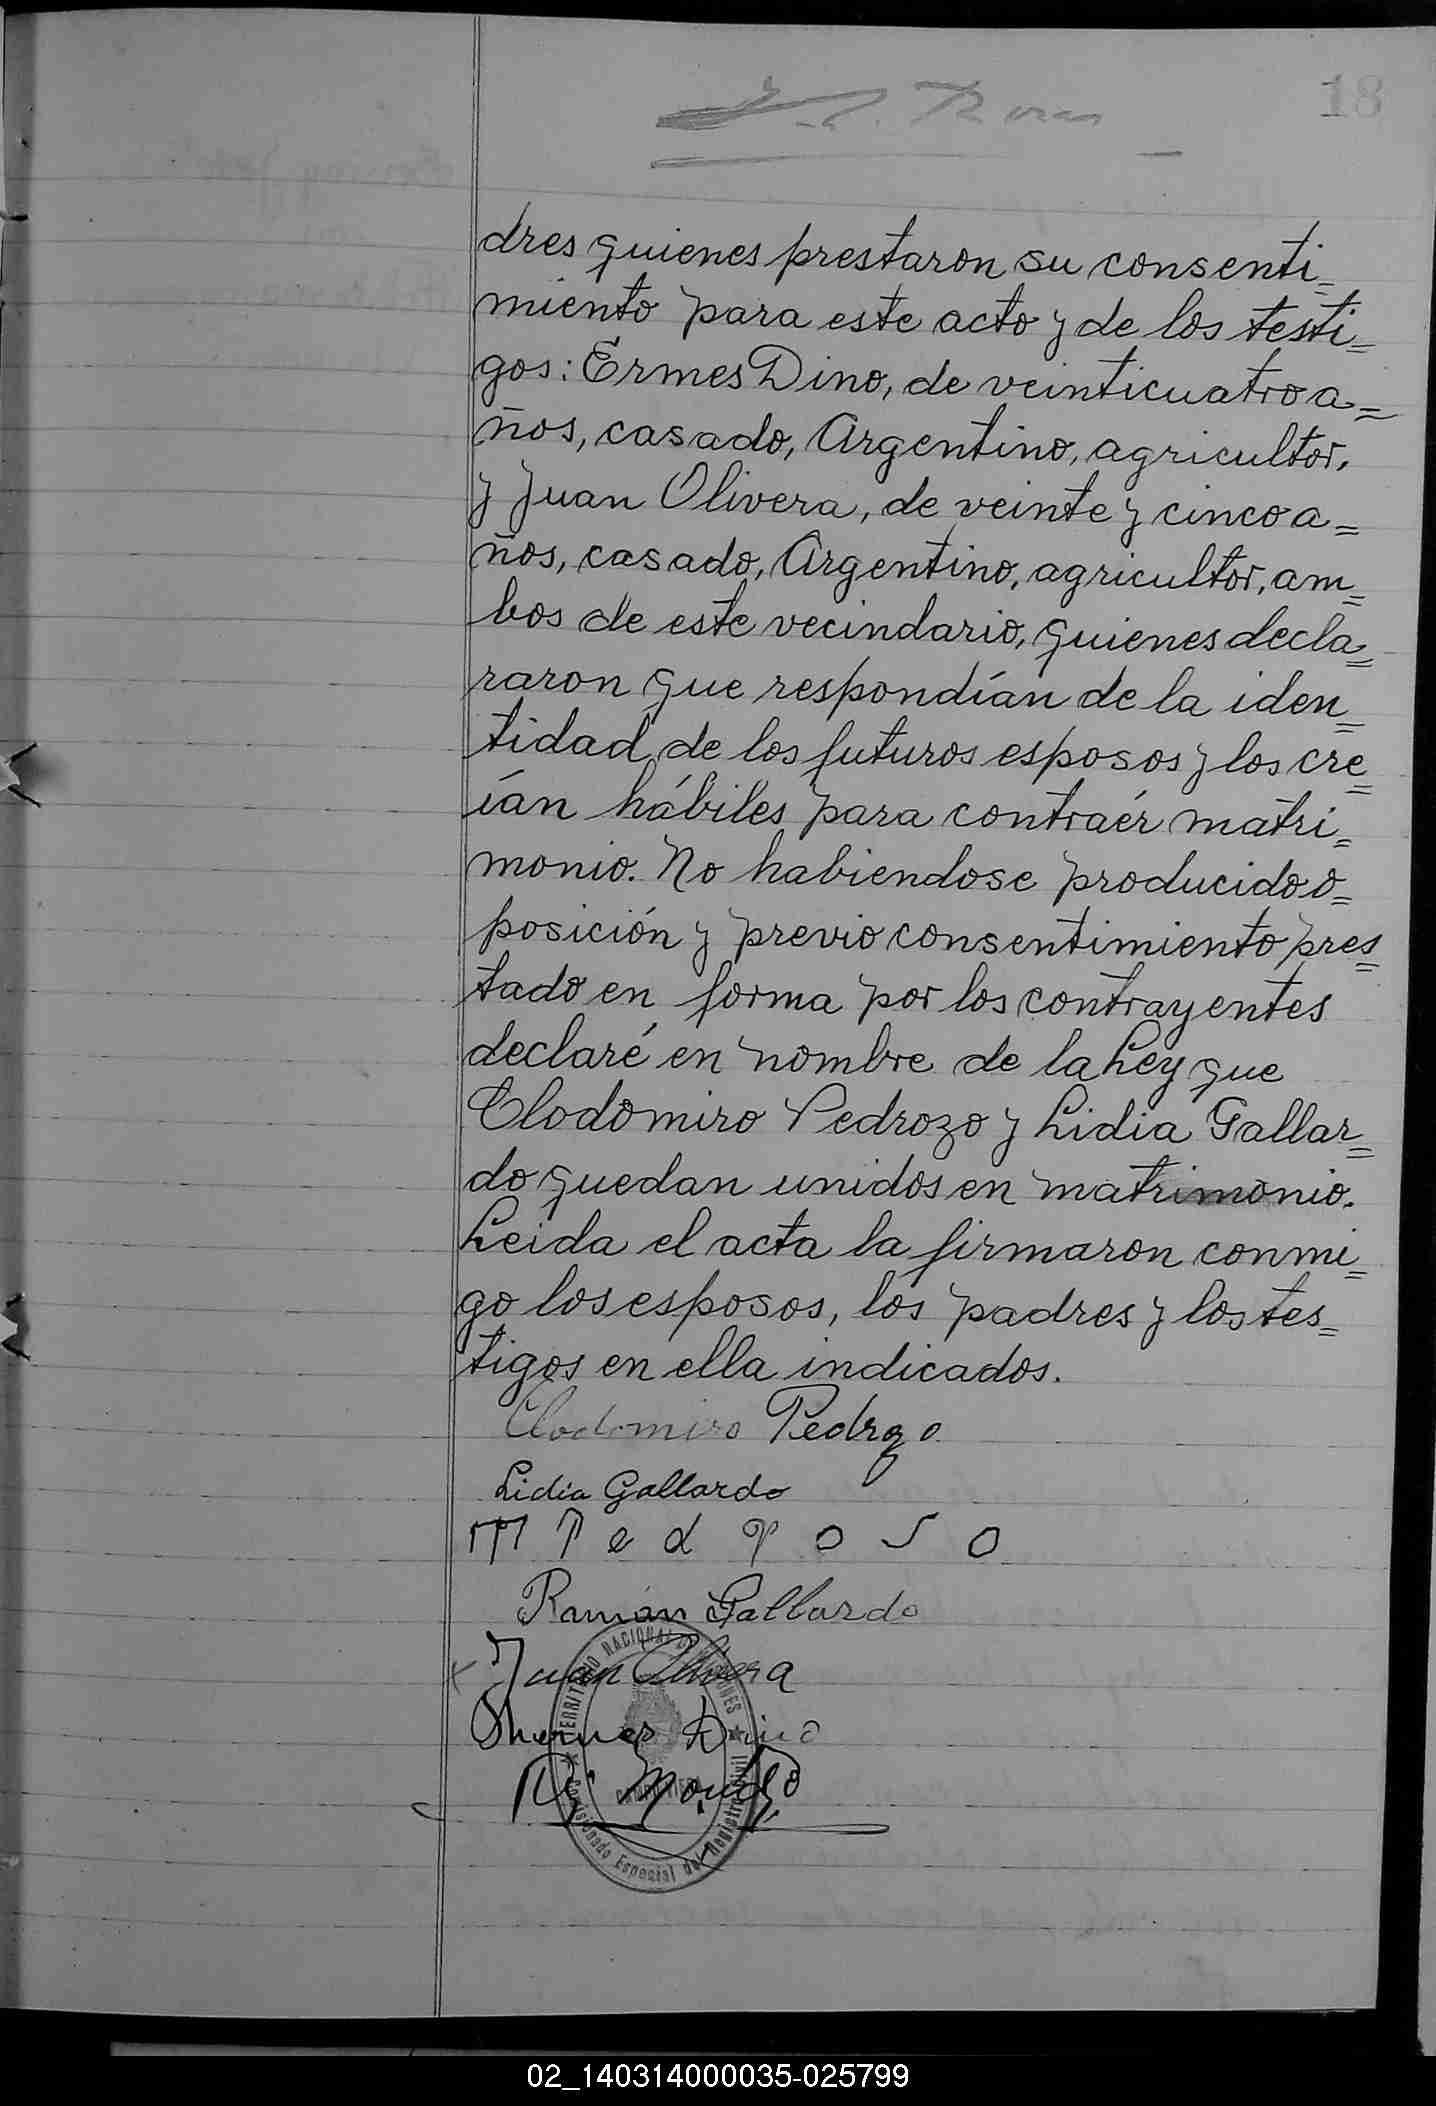 18
dres quienes prestaron su consenti=
miento para este acto y de los testi=
gos: Ermes Dino, de veinticuatro a=
ños, casado, Argentino, agricultor,
y Juan Olivera, de veinte y cinco a=
ños, casado, Argentino, agricultor, am=
bos de este vecindario, quienes decla=
raron que respondían de la iden=
tidad de los futuros esposos y los cre=
ían hábiles para contraér matri=
monio. No habiendose producido o=
posición y previo consentimiento pres=
tado en forma por los contrayentes
declaré en nombre de la Ley que
Clodomiro Pedrozo y Lidia Gallar=
do quedan unidos en matrimonio.
Leida el acta la firmaron conmi=
go los esposos, los padres y los tes=
tigos en ella indicados.
Clodomiro Pedrozo
Lidia Gallardo
M Pedroso
Ramón Gallardo
Juan Olivera
Dino
TERRITORIO NACIONAL DE MISIONES
Comisionado Especial del Registro Civil
02_140314000035-025799